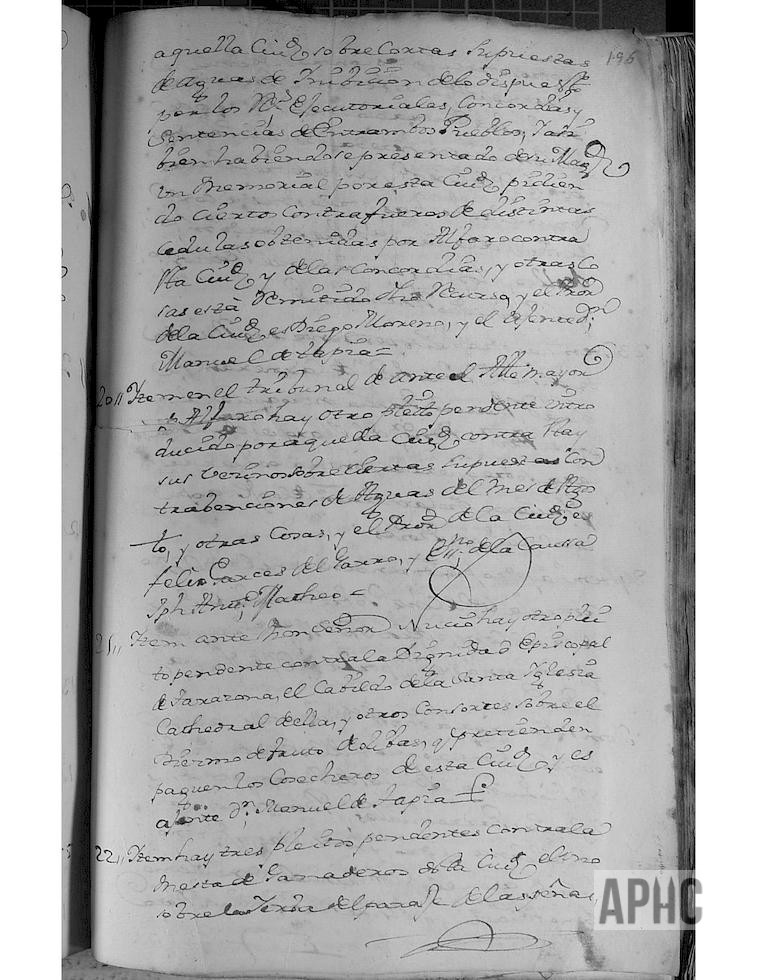 196
aquella Ciud. sobre Cortas Supuestas
de aguas de Inibicion de lo dispuesto
por los Rs. Executoriales, Concordias, y
Sentencias de Entrambos Pueblos, Tam
bien habiendose presentado a su Magd.
un Memorial por esta Ciud. pidien
do ciertos Contrafueros de distintas
cedulas obtenidas por Alfaro contra
sta Ciud. y de las Concordias, y otras Co
sas está Remitido dho Recurso, y el Pror.
de la Ciud. es Diego Moreno, y el Ajente Dn.
Manuel de Tapia =
20,, Item en el tribunal de ante el Alle mayor
de Alfaro hay otro Pleito pendente intro
ducido por aquella Ciud. contra sta y
sus Vecinos sobre ciertas Supuestas Con
trabenciones de Aguas del Mes de Agos
to, y otras Cosas, y el Pror. de la Ciud. es
Felix Garces del Garro, y Essno. de la Caussa
Jph Anto. Matheo =
21,, Item ante Monseñor Nucio hay otro plei
to pendente contra la Dignidad Episcopal
de Tarazona, el Cabildo de la Santa Iglesia
Cathedral de ella, y otros Consortes sobre el
Diezmo de fruto de olibas, q. pretenden
paguen los Cosecheros de esta Ciud. y es
ajente Dn. Manuel de Tapia
22,, Item hay tres Pleitos pendentes contra la
Mesta de Ganaderos de sta Ciud. el uno
sobre la Yerba del paraje de la
APHC